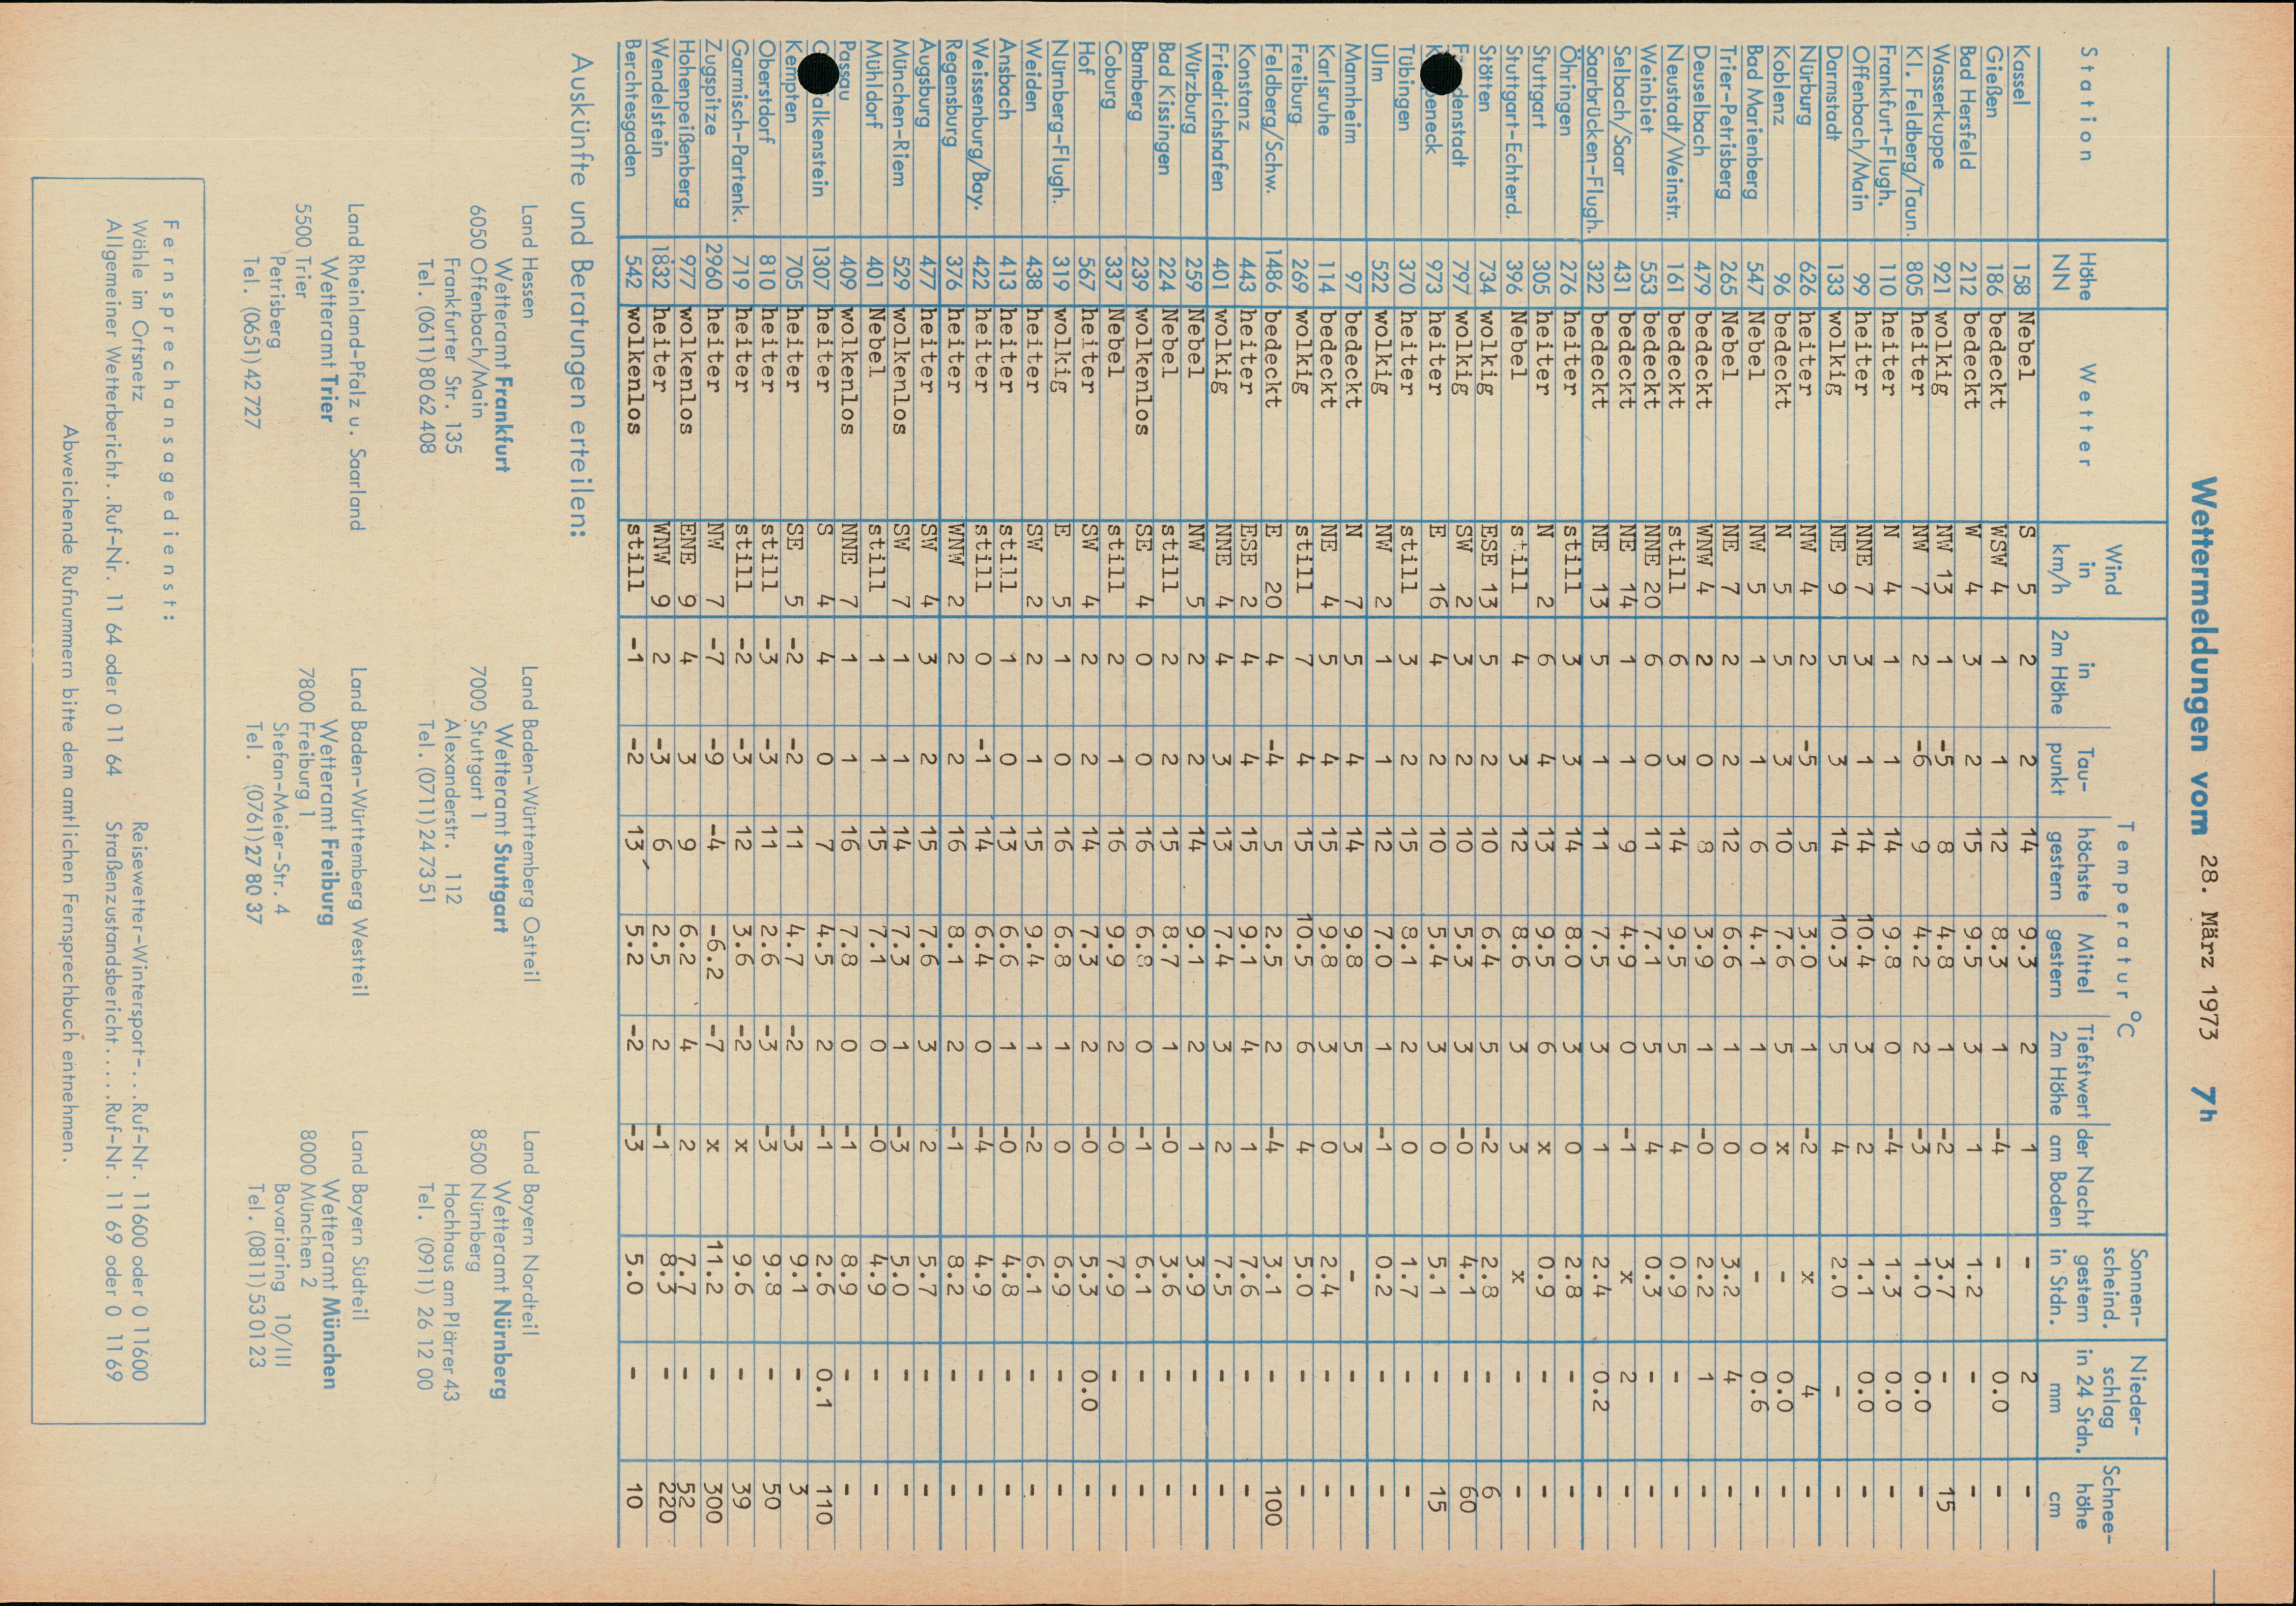 Wettermeldungen vom 28. März 1973 7h
Station Höhe NN Wetter Wind in km/h Temperatur °C in 2m Höhe Tau-punkt höchste gestern Mittel gestern Tiefstwert der Nacht 2m Höhe am Boden Sonnen-scheind. gestern in Stdn. Nieder-schlag in 24 Stdn. mm Schnee-höhe cm
Kassel 158 Nebel S 5 2 2 14 9.3 2 1 - 2 -
Gießen 186 bedeckt WSW 4 1 1 12 8.3 1 -4 - 0.0 -
Bad Hersfeld 212 bedeckt W 4 3 2 15 9.5 3 1 1.2 - -
Wasserkuppe 921 wolkig NW 13 1 -5 8 4.8 1 -2 3.7 - 15
Kl. Feldberg/Taun. 805 heiter NW 7 2 -6 9 4.2 2 -3 1.0 0.0 -
Frankfurt-Flugh. 110 heiter N 4 1 1 14 9.8 0 -4 1.3 0.0 -
Offenbach/Main 99 heiter NNE 7 3 1 14 10.4 3 2 1.1 0.0 -
Darmstadt 133 wolkig NE 9 5 3 14 10.3 5 4 2.0 - -
Nürburg 626 heiter NW 4 2 -5 5 3.0 1 -2 x 4 -
Koblenz 96 bedeckt N 5 5 3 10 7.6 5 x - 0.0 -
Bad Marienberg 547 Nebel NW 5 1 1 6 4.1 1 0 - 0.6 -
Trier-Petrisberg 265 Nebel NE 7 2 2 12 6.6 1 0 3.2 4 -
Deuselbach 479 bedeckt WNW 4 2 0 8 3.9 1 -0 2.2 1 -
Neustadt/Weinstr. 161 bedeckt still 6 3 14 9.5 5 4 0.9 - -
Weinbiet 553 bedeckt NNE 20 6 0 11 7.1 5 4 0.3 - -
Selbach/Saar 431 bedeckt NE 14 1 1 9 4.9 0 -1 x 2 -
Saarbrücken-Flugh. 322 bedeckt NE 13 5 1 11 7.5 3 1 2.4 0.2 -
Öhringen 276 heiter still 3 3 14 8.0 3 0 2.8 - -
Stuttgart 305 heiter N 2 6 4 13 9.5 6 x 0.9 - -
Stuttgart-Echterd. 396 Nebel still 4 3 12 8.6 3 3 x - -
Stötten 734 wolkig ESE 13 5 2 10 6.4 5 -2 2.8 - 6
F denstadt 797 wolkig SW 2 3 2 10 5.3 3 -0 4.1 - 60
K beneck 973 heiter E 16 4 2 10 5.4 3 0 5.1 - 15
Tübingen 370 heiter still 3 2 15 8.1 2 0 1.7 - -
Ulm 522 wolkig NW 2 1 1 12 7.0 1 -1 0.2 - -
Mannheim 97 bedeckt N 7 5 4 14 9.8 5 3 - - -
Karlsruhe 114 bedeckt NE 4 5 4 15 9.8 3 0 2.4 - -
Freiburg 269 wolkig still 7 4 15 10.5 6 4 5.0 - -
Feldberg/Schw. 1486 bedeckt E 20 4 -4 5 2.5 2 -4 3.1 - 100
Konstanz 443 heiter ESE 2 4 4 15 9.1 4 1 7.6 - -
Friedrichshafen 401 wolkig NNE 4 4 3 13 7.4 3 2 7.5 - -
Würzburg 259 Nebel NW 5 2 2 14 9.1 2 1 3.9 - -
Bad Kissingen 224 Nebel still 2 2 15 8.7 1 -0 3.6 - -
Bamberg 239 wolkenlos SE 4 0 0 16 6.8 0 -1 6.1 - -
Coburg 337 Nebel still 2 1 16 9.9 2 -0 7.9 - -
Hof 567 heiter SW 4 2 2 14 7.3 2 -0 5.3 0.0 -
Nürnberg-Flugh. 319 wolkig E 5 1 0 16 6.8 1 0 6.9 - -
Weiden 438 heiter SW 2 2 1 15 9.4 1 -2 6.1 - -
Ansbach 413 heiter still 1 0 13 6.6 1 -0 4.8 - -
Weissenburg/Bay. 422 heiter still 0 -1 14 6.4 0 -4 4.9 - -
Regensburg 376 heiter WNW 2 2 2 16 8.1 2 -1 8.2 - -
Augsburg 477 heiter SW 4 3 2 15 7.6 3 2 5.7 - -
München-Riem 529 wolkenlos SW 7 1 1 14 7.3 1 -3 5.0 - -
Mühldorf 401 Nebel still 1 1 15 7.1 0 -0 4.9 - -
Passau 409 wolkenlos NNE 7 1 1 16 7.8 0 -1 8.9 - -
G alkenstein 1307 heiter S 4 4 0 7 4.5 2 -1 2.6 0.1 110
Kempten 705 heiter SE 5 -2 -2 11 4.7 -2 -3 9.1 - 3
Oberstdorf 810 heiter still -3 -3 11 2.6 -3 -3 9.8 - 50
Garmisch-Partenk. 719 heiter still -2 -3 12 3.6 -2 x 9.6 - 39
Zugspitze 2960 heiter NW 7 -7 -9 -4 -6.2 -7 x 11.2 - 300
Hohenpeißenberg 977 wolkenlos ENE 9 4 3 9 6.2 4 2 7.7 - 52
Wendelstein 1832 heiter WNW 9 2 -3 6 2.5 2 -1 8.3 - 220
Berchtesgaden 542 wolkenlos still -1 -2 13 5.2 -2 -3 5.0 - 10
Auskünfte und Beratungen erteilen:
Land Hessen
Wetteramt Frankfurt
6050 Offenbach/Main
Frankfurter Str. 135
Tel. (0611) 80 62 408
Land Baden-Württemberg Ostteil
Wetteramt Stuttgart
7000 Stuttgart 1
Alexanderstr. 112
Tel. (0711) 24 73 51
Land Bayern Nordteil
Wetteramt Nürnberg
8500 Nürnberg
Hochhaus am Plärrer 43
Tel. (0911) 26 12 00
Land Rheinland-Pfalz u. Saarland
Wetteramt Trier
5500 Trier
Petrisberg
Tel. (0651) 42 727
Land Baden-Württemberg Westteil
Wetteramt Freiburg
7800 Freiburg 1
Stefan-Meier-Str. 4
Tel. (0761) 27 80 37
Land Bayern Südteil
Wetteramt München
8000 München 2
Bavariaring 10/III
Tel. (0811) 53 01 23
Fernsprechansagedienst:
Wähle im Ortsnetz Reisewetter-Wintersport-...Ruf-Nr. 11600 oder 0 11600
Allgemeiner Wetterbericht..Ruf-Nr. 11 64 oder 0 11 64 Straßenzustandsbericht.....Ruf-Nr. 11 69 oder 0 11 69
Abweichende Rufnummern bitte dem amtlichen Fernsprechbuch entnehmen.